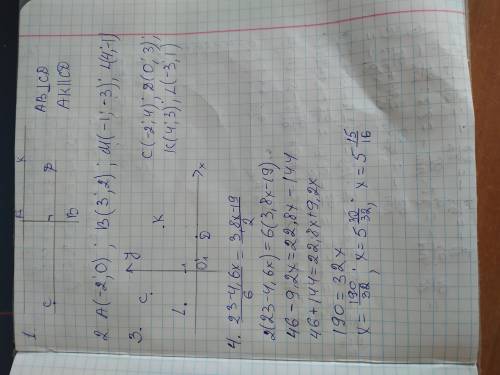 1.
C A B D K
AB⊥CD
AK∥CD
2. A(-2;0); B(3;2); M(-1;-3); L(4;-1)
3.
y
C.
K
L.
0 1
D
x
C(-2;4); D(0;3);
K(4;3); L(-3;1)
4. (23-4,6x)/6 = (3,8x-19)/2
2(23-4,6x)=6(3,8x-19)
46-9,2x=22,8x-144
46+144=22,8x+9,2x
190=32x
x=190/32; x=5 30/32; x=5 15/16